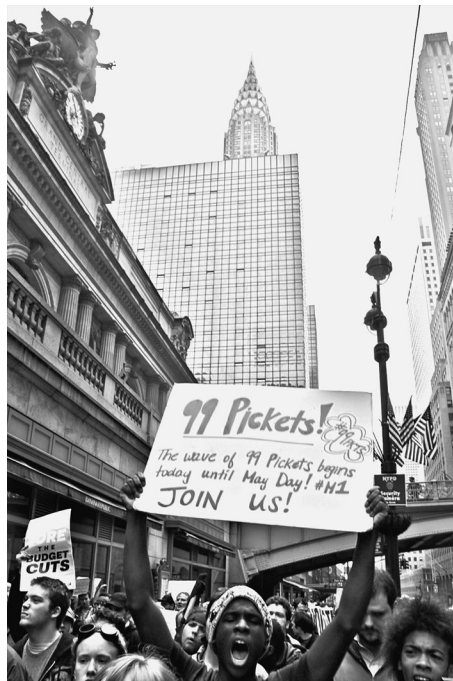 99 Pickets!
The wave of 99 Pickets begins
today until May Day! #M1
JOIN US!
THE
BUDGET
CUTS
NYPD
Security
Camera